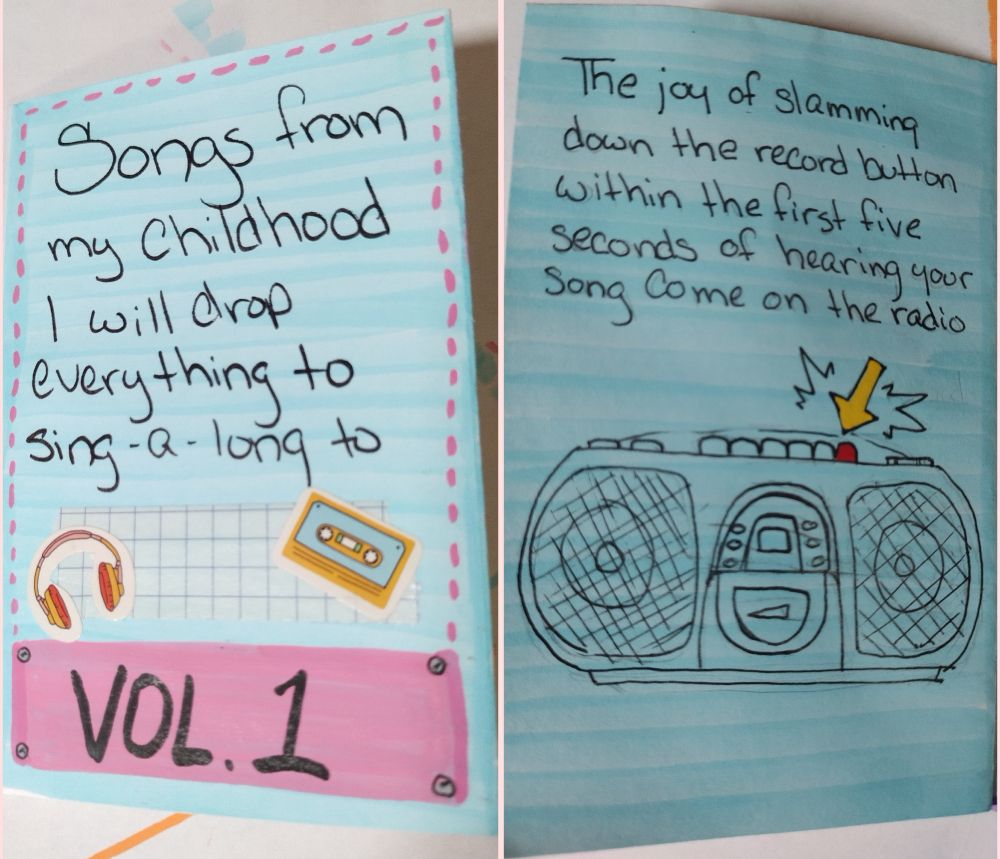 Songs from
my Childhood
I will drop
everything to
sing-a-long to
VOL. 1
The joy of slamming
down the record button
within the first five
seconds of hearing your
song Come on the radio